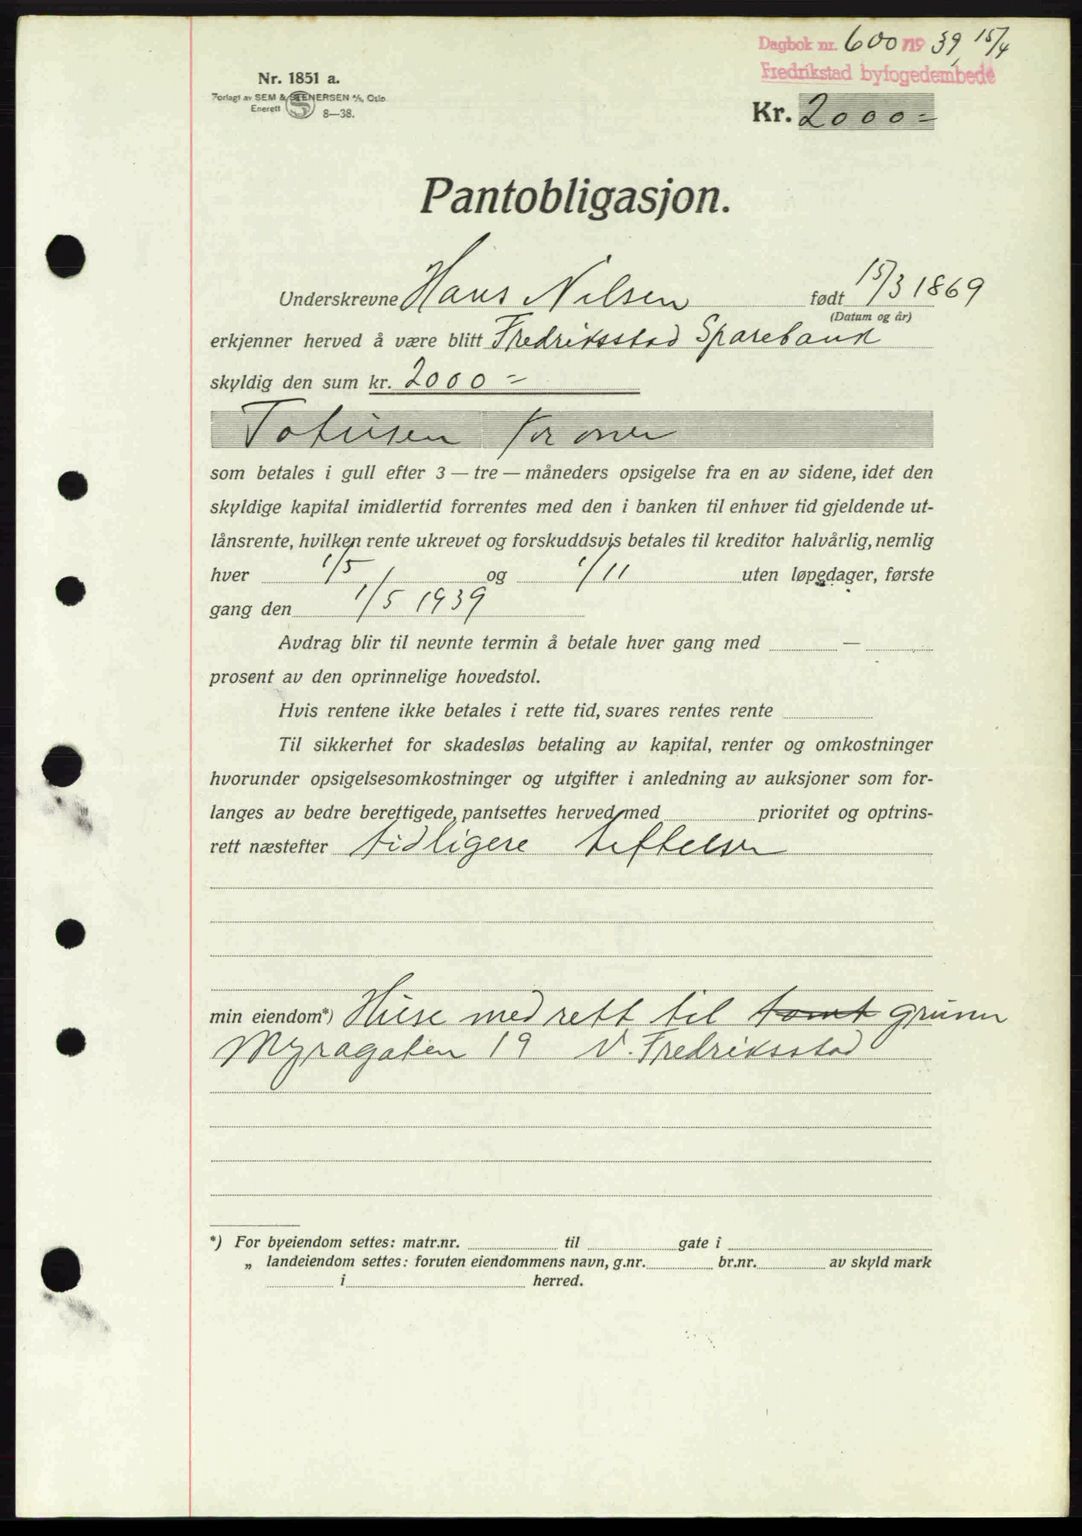 Dagbok nr. 600 19 39, 15/4
Fredrikstad byfogedembede
Nr. 1851 a.
Forlagt av SEM & STENERSEN A/S, Oslo
Enerett 8—38.
Kr. 2000 =
Pantobligasjon.
Underskrevne Hans Nilsen født 15/3 1869
(Datum og år)
erkjenner herved å være blitt Fredriksstad Sparebank
skyldig den sum kr. 2000 =
Totusen kroner
som betales i gull efter 3 — tre — måneders opsigelse fra en av sidene, idet den
skyldige kapital imidlertid forrentes med den i banken til enhver tid gjeldende ut-
lånsrente, hvilken rente ukrevet og forskuddsvis betales til kreditor halvårlig, nemlig
hver 1/5 og 1/11 uten løpedager, første
gang den 1/5 1939
Avdrag blir til nevnte termin å betale hver gang med —
prosent av den oprinnelige hovedstol.
Hvis rentene ikke betales i rette tid, svares rentes rente
Til sikkerhet for skadesløs betaling av kapital, renter og omkostninger
hvorunder opsigelsesomkostninger og utgifter i anledning av auksjoner som for-
langes av bedre berettigede, pantsettes herved med prioritet og optrins-
rett næstefter tidligere heftelser
min eiendom*) Huse med rett til tomt grunn
Myragaten 19 V. Fredriksstad
*) For byeiendom settes: matr.nr. til gate i
„ landeiendom settes: foruten eiendommens navn, g.nr. br.nr. av skyld mark
i herred.